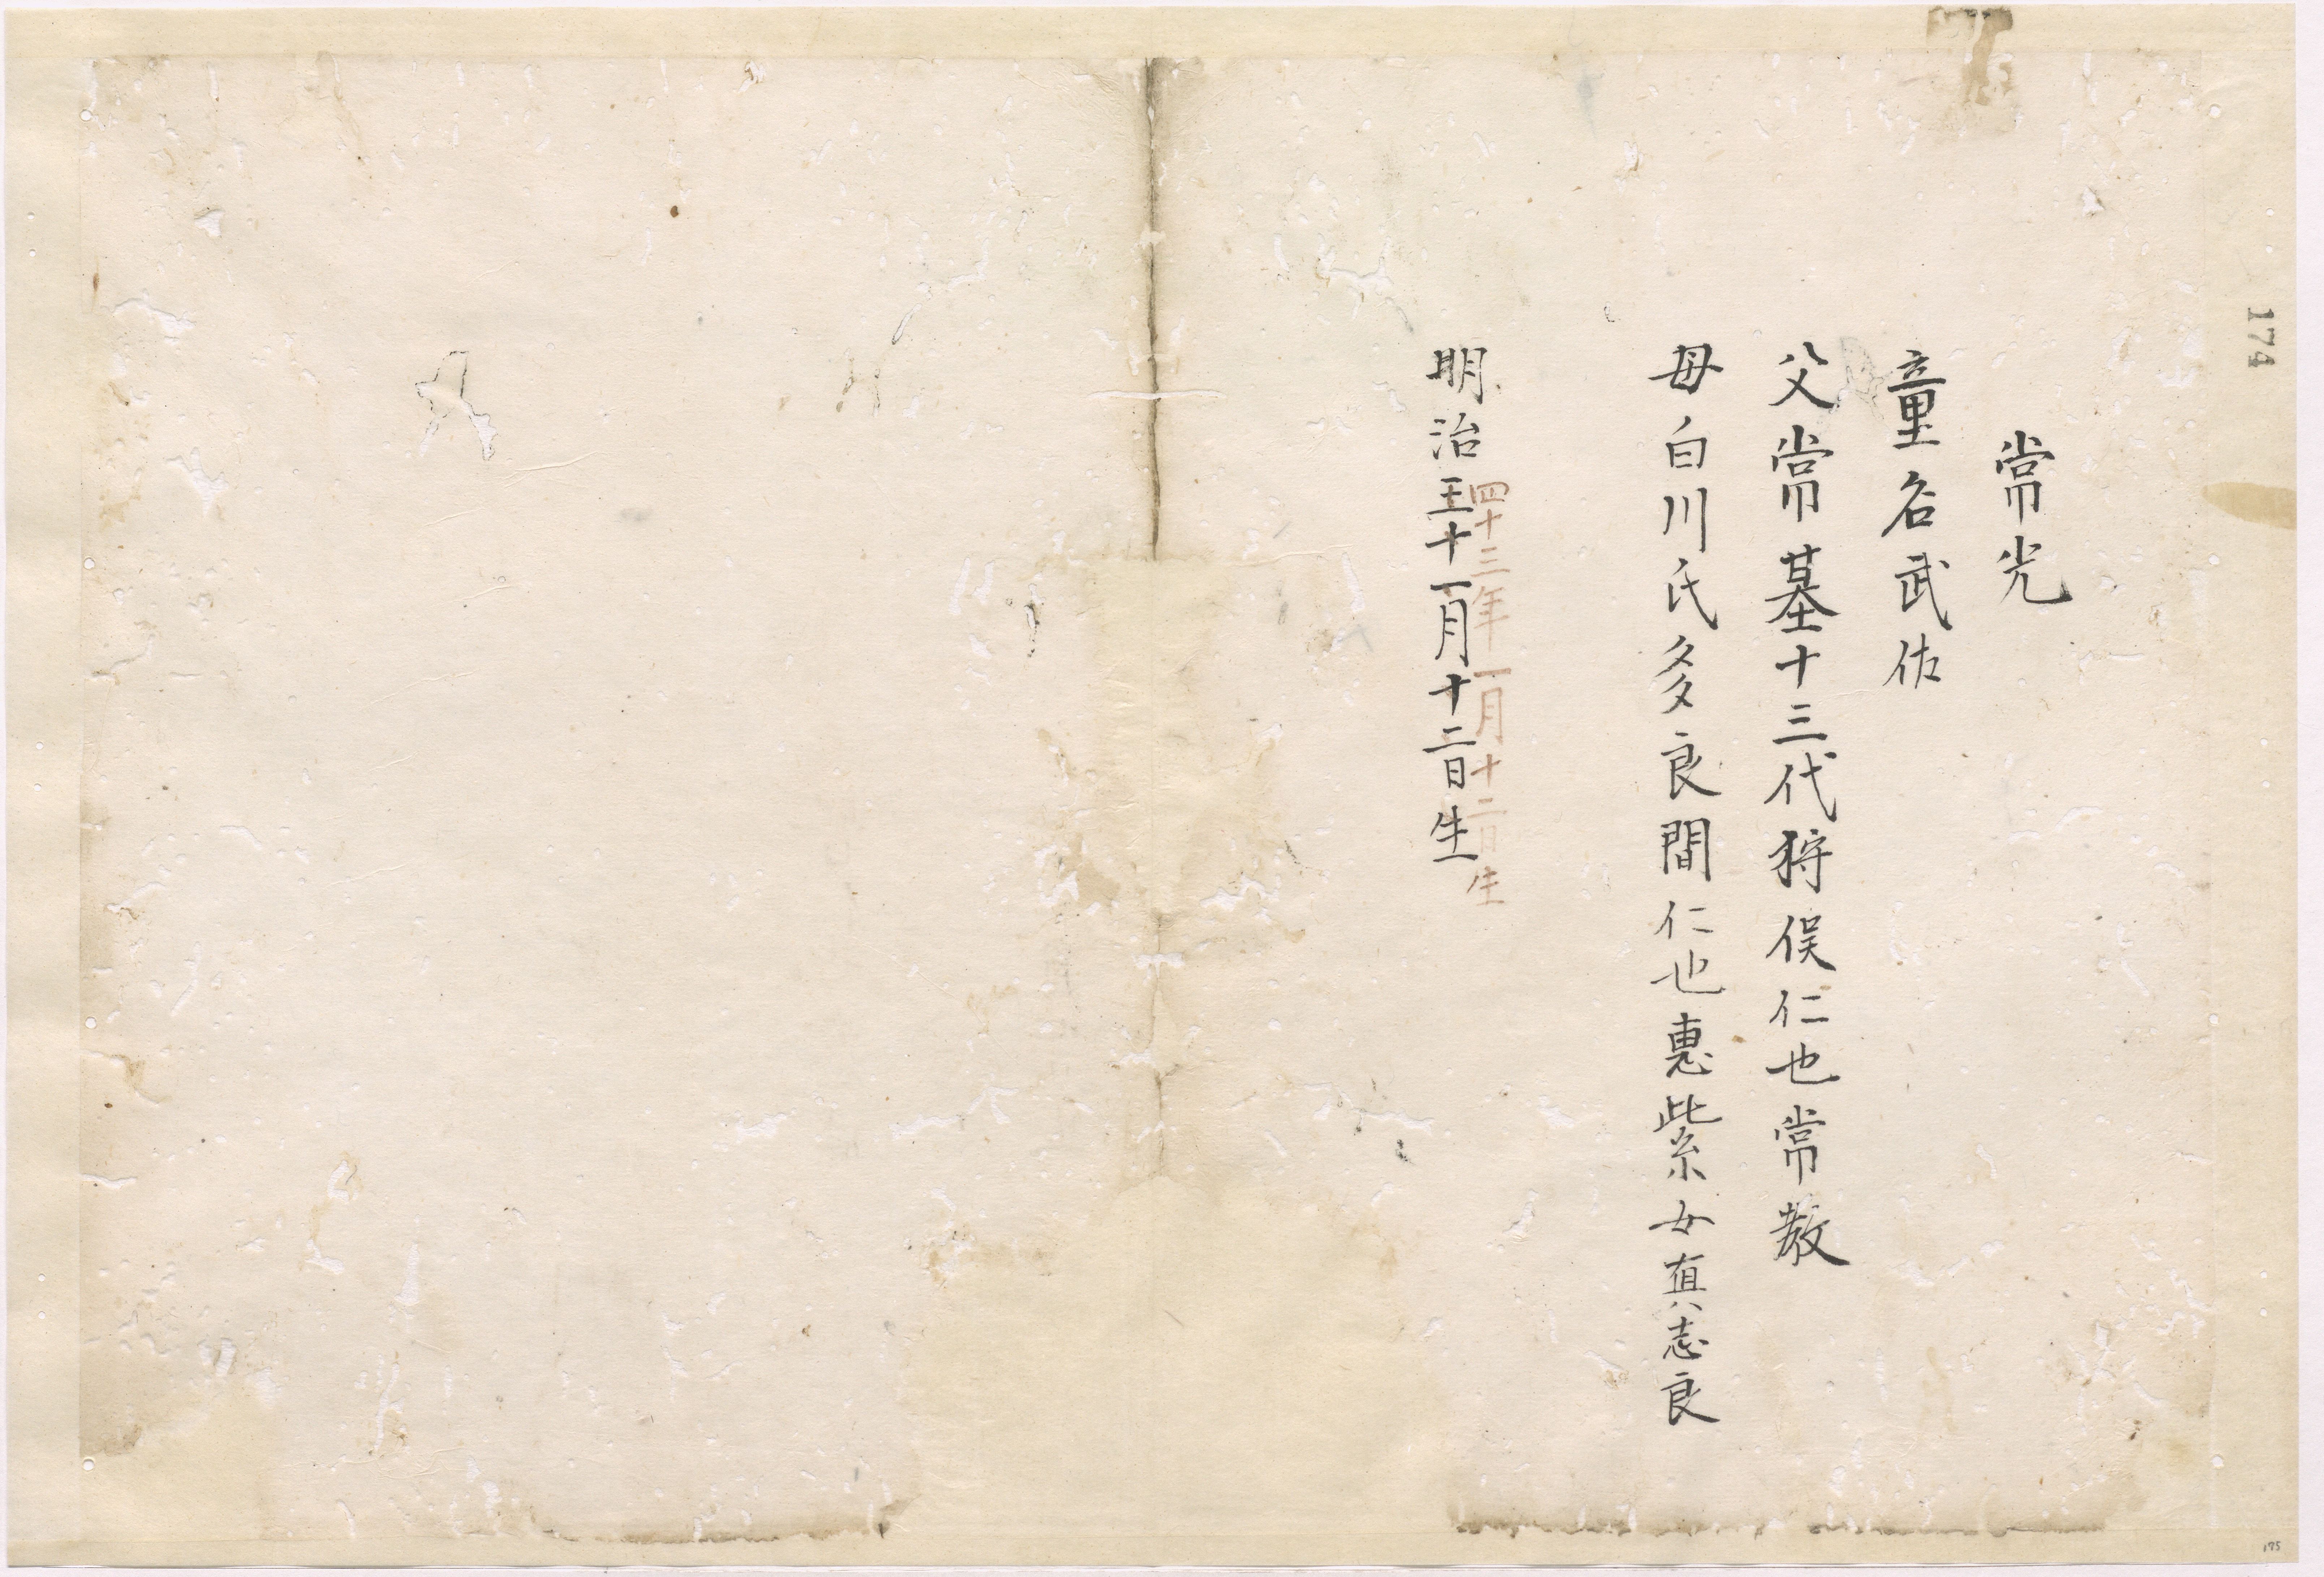 174
常光
童名武佑
父常基十三代狩俣仁也常教
母白川氏多良間仁也惠紫女真志良
四十三年一月十二日生
明治三十一月十二日生
175